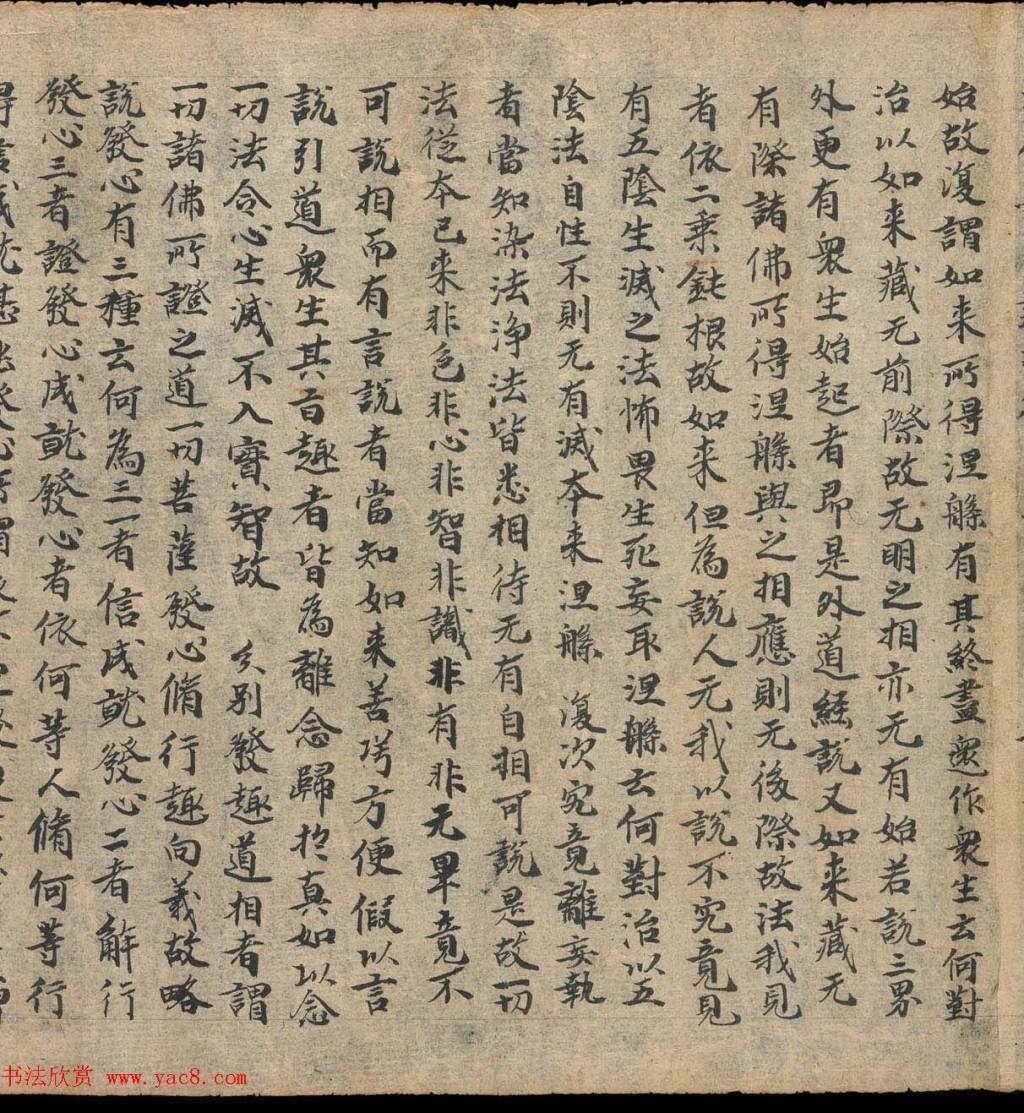 始故復謂如来所得涅槃有其終盡還作衆生云何對
治以如来藏无前際故无明之相亦无有始若説三界
外更有衆生始起者即是外道經説又如来藏无
有際諸佛所得涅槃與之相應則无後際故法我見
者依二乗鈍根故如来但為説人无我以説不究竟見
有五陰生滅之法怖畏生死妄取涅槃云何對治以五
陰法自性不則无有滅夲来涅槃 復次究竟離妄執
者當知染法浄法皆悉相待无有自相可説是故一切
法從夲已来非色非心非智非識非有非无畢竟不
可説相而有言説者當知如来善巧方便假以言
説引道衆生其旨趣者皆為離念歸於真如以念
一切法令心生滅不入實智故 分别發趣道相者謂
一切諸佛所證之道一切菩薩發心脩行趣向義故略
説發心有三種云何為三一者信成就發心二者解行
發心三者證發心成就發心者依何等人脩何等行
书法欣赏 www.yac8.com